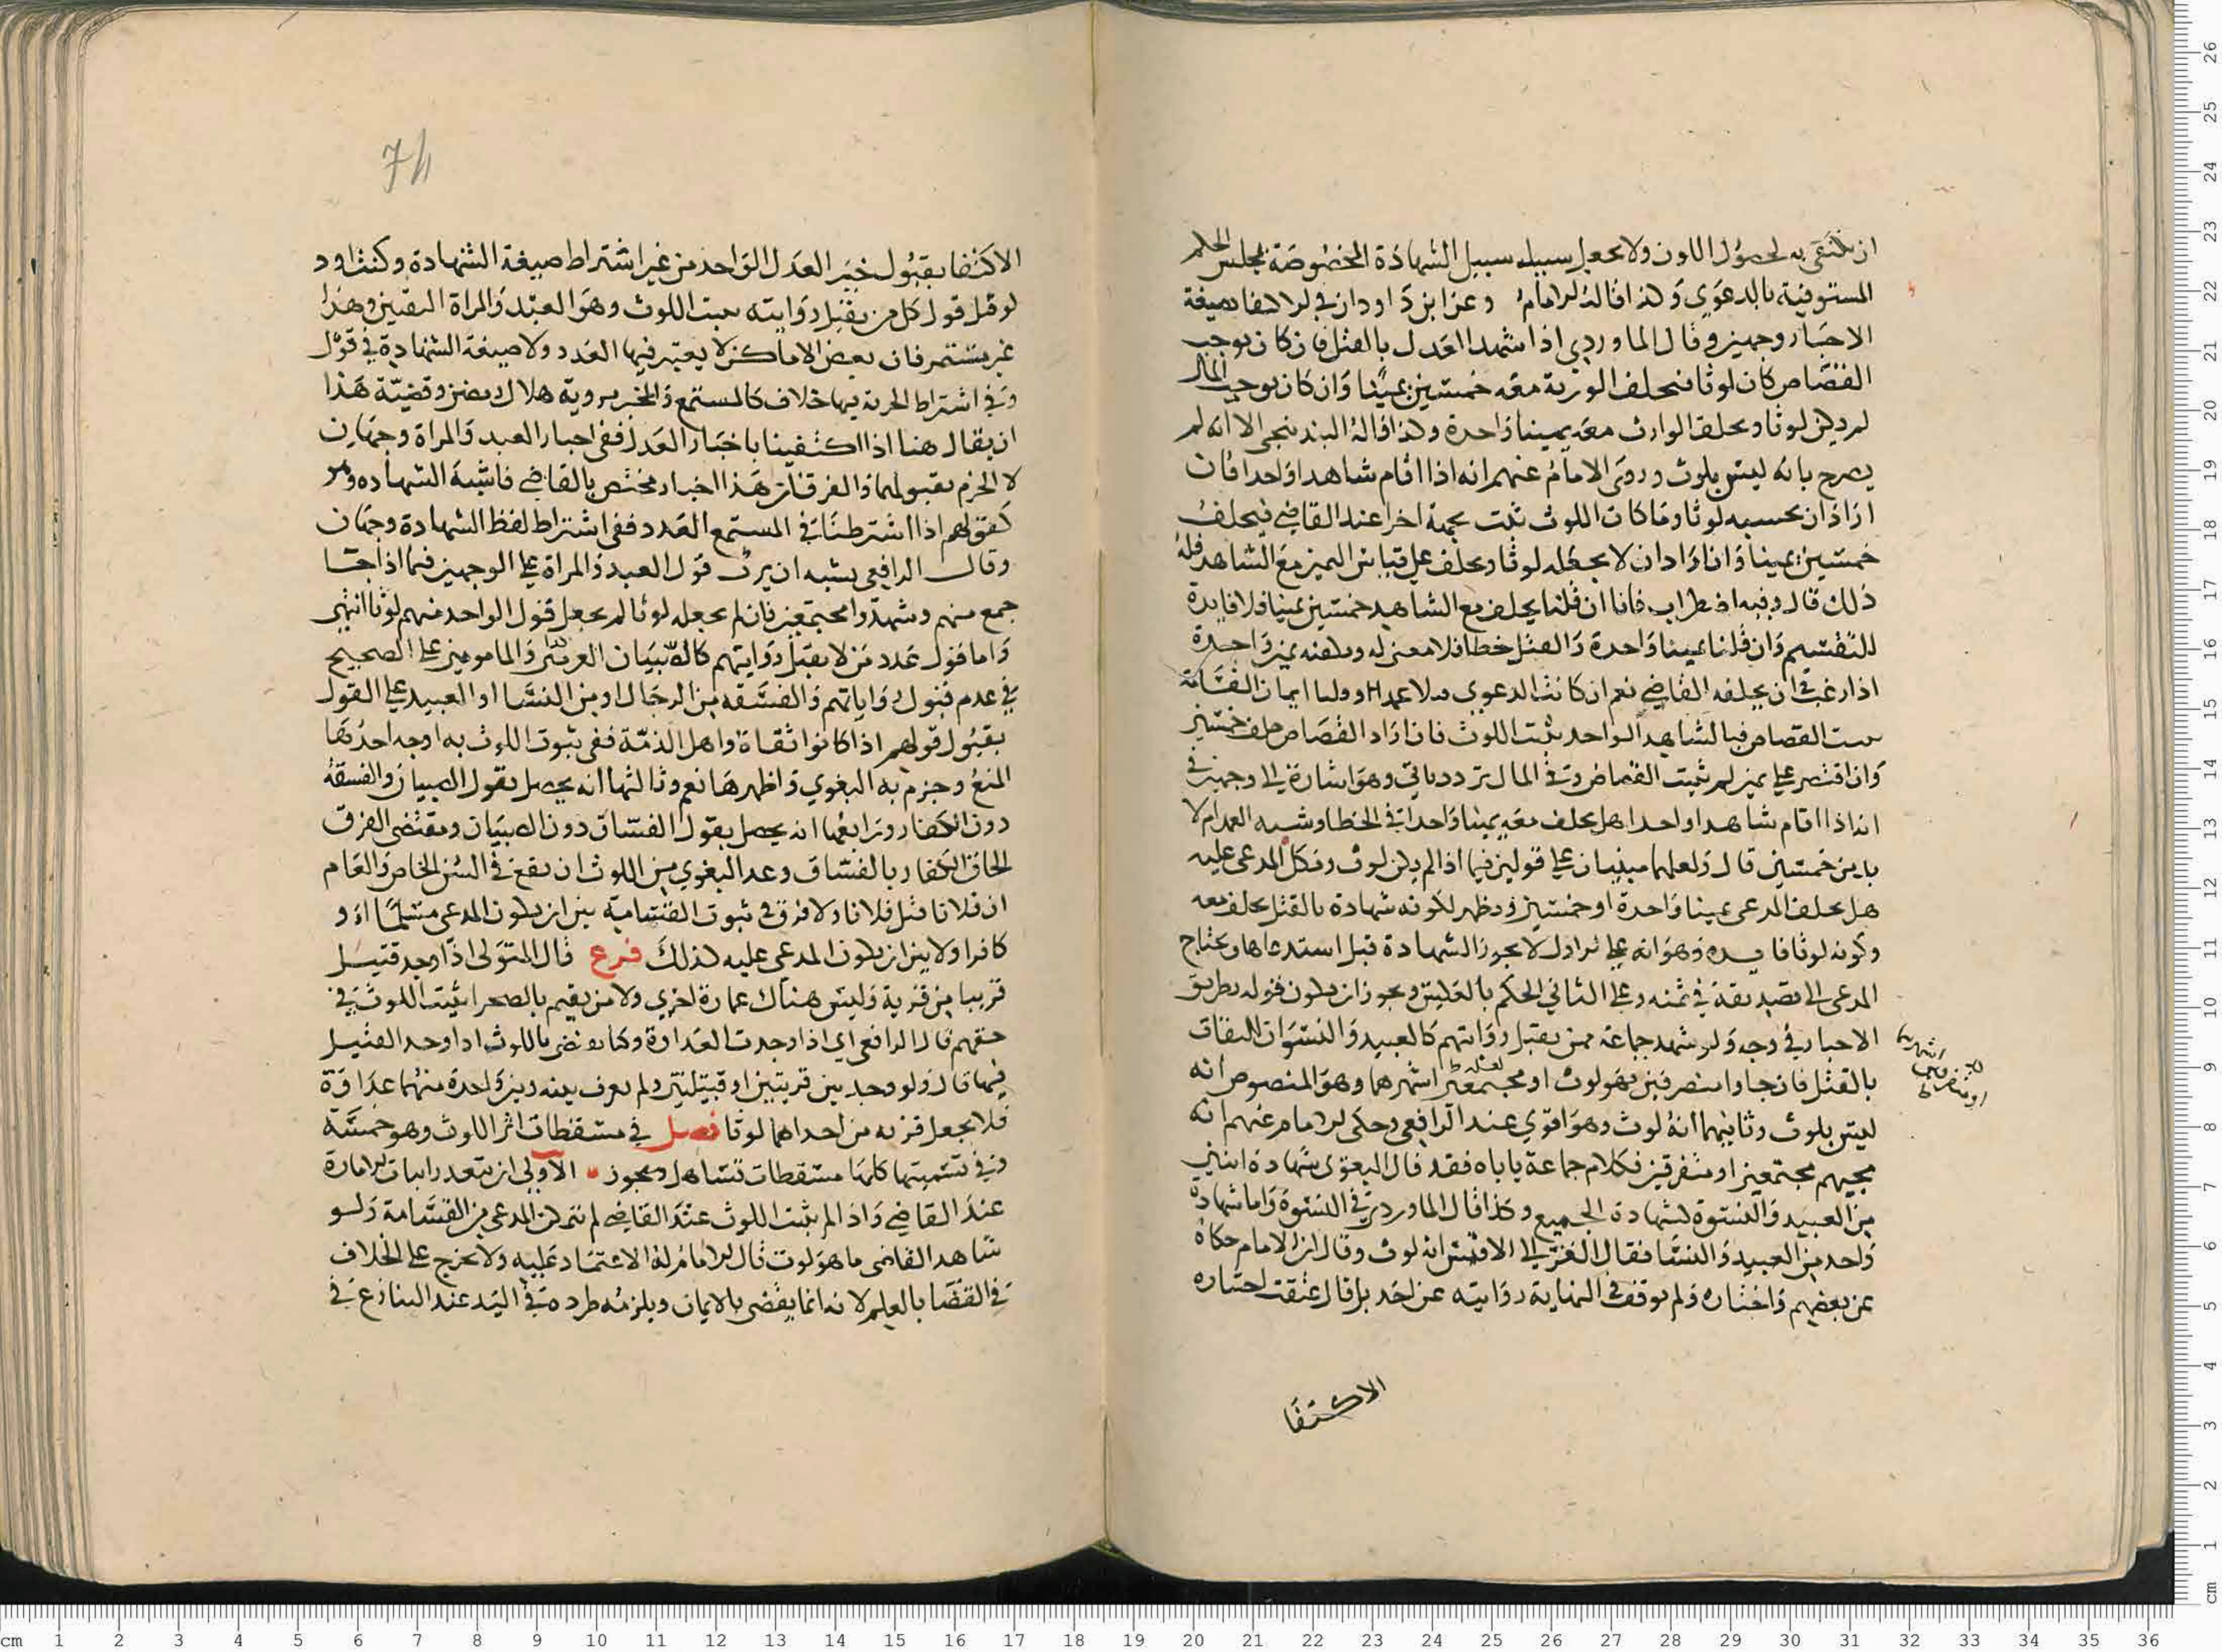 ان يكتفى به لحصول اللوث ولا يجعل سبيله سبيل الشهادة المخصوصة بمجلس الحكم
المستوفية بالدعوى وكذا قاله الامام وعن ابن داود ان في الاكتفا بصيغة
الاخبار وجهين وقال الماوردي اذا شهد العدل بالقتل فان كان يوجب
القصاص كان لوثا فيحلف الورثة معه خمسين يمينا وان كان يوجب المال
لم يكن لوثا ويحلف الوارث معه يمينا واحدة وكذا قاله البندنيجي الا انه لم
يصرح بانه ليس بلوث وروى الامام عنهم انه اذا اقام شاهدا واحدا فان
اراد ان يحسبه لوثا وما كان اللوث ثبت بجهة اخرا عند القاضي فيحلف
خمسين يمينا وان اراد ان لا يجعله لوثا ويحلف على قياس اليمين مع الشاهد فله
ذلك قال وفيه اضطراب فانا ان قلنا يحلف مع الشاهد خمسين يمينا فلا فايدة
للتقسيم وان قلنا يمينا واحدة والقتل خطا فلا معنى له ويكفيه يمين واحدة
اذا رغب في ان يحلفه القاضي نعم ان كانت الدعوى قتلا عمدا وقلنا ايمان القسامة
تثبت القصاص فبالشاهد الواحد يثبت اللوث فان اراد القصاص حلف خمسين
وان اقتصر على يمين لم يثبت القصاص وفي المال تردد ياتي وهو اشارة الى وجهين في
انه اذا اقام شاهدا واحدا هل يحلف معه يمينا واحدا في الخطا وشبه العمد ام لا
بد من خمسين قال ولعلهما مبنيان على قولين فيما اذا لم يكن لوث ونكل المدعى عليه
هل يحلف المدعي يمينا واحدة او خمسين ويظهر لكونه شهادة بالقتل يحلف معه
وكونه لوثا فايده وهو انه على الاول لا يجوز الشهادة قبل استدعاها ويحتاج
المدعي الى تصديقة في ثمنه وعلى الثاني الحكم بالعكس ويجوز ان يكون قوله بطريق
الاخبار في وجه ولو شهد جماعة ممن يقبل روايتهم كالعبيد والنسوان الثقات
بالقتل فان جاوا متفرقين فهو لوث او مجتمعين اشهرهما وهو المنصوص انه
ليس بلوث وثانيهما انه لوث وهو اقوى عند الرافعي وحكى الامام عنهم انه
مجيهم مجتمعين او متفرقين فكلام جماعة ياباه فقد قال البغوي شهادة اثنين
من العبيد والنسوة كشهادة الجميع وكذا قال الماوردي في النسوة واما شهادة
واحد من العبيد والنسا فقال الغزالي الاقيس انه لوث وقال ان الامام حكاه
عن بعضهم واختاره ولم يوقف في النهاية روايته عن احد بل قال عقبت اختياره
الاكتفا
74
الاكتفا بقبول خبر العدل الواحد من غير اشتراط صيغة الشهادة وكنت اود
لو قيل قول كل من يقبل روايته يثبت اللوث وهو العبد والمراة الثقتين وهذا
غير مستمر فان بعض الاماكن لا يعتبر فيها العدد ولا صيغة الشهادة في قول
وفي اشتراط الحرية فيها خلاف كالمستمع والمخبر برويه هلال رمضن وقضية هذا
ان يقال هنا اذا اكتفينا باخبار العدل ففي اخبار العبد والمراة وجهان
لا الجزم بقبولهما والفرق ان هذا اخبار مختص بالقاضي فاشبه الشهاده ومر
كقولهم اذا اشترطنا في المستمع العدد ففي اشتراط لفظ الشهادة وجهان
وقال الرافعي يشبه ان يرتب قول العبد والمراة على الوجهين فيما اذا جا
جمع منهم وشهدوا مجتمعين فان لم يجعله لوثا لم يجعل قول الواحد منهم لوثا انتهى
واما قول عدد من لا يقبل روايتهم كالصبيان العرمين والمامومين على الصحيح
في عدم قبول رواياتهم والفسقه من الرجال او من النسا او العبيد على القول
بقبول قولهم اذا كانوا ثقاة واهل الذمة ففي ثبوت اللوث به اوجه احدها
المنع وجزم به البغوي واظهرها نعم وثالثها انه يحصل بقول الصبيان والفسقه
دون الكفار ورابعها انه يحصل بقول الفساق دون الصبيان ومقتضى الفرق
الحاق الكفار بالفساق وعد البغوي من اللوث ان يقع في السن الخاص والعام
ان فلانا قتل فلانا ولا فرق في ثبوت القسامة بين ان يكون المدعي مسلما او
كافرا ولا بين ان يكون المدعى عليه كذلك فرع قال المتولى اذا وجد قتيل
قريبا من قرية وليس هناك عمارة اخرى ولا من يقيم بالصحرا يثبت اللوث في
حقهم قال الرافعي اي اذا وجدت العداوة وكما نقضي باللوث اذا وجد القتيل
فيها قال ولو وجد بين قريتين او قبيلتين ولم يعرف بينه وبين واحدة منهما عداوة
فلا يجعل قربه من احداهما لوثا فصل في مسقطات اثر اللوث وهو خمسة
وفي تسميتها كلها مسقطات تساهل وتجوز الاولى ان يتعدر اثبات الامارة
عند القاضي واذا لم يثبت اللوث عند القاضي لم يتمكن المدعي من القسامة ولو
شاهد القاضي ما هو لوث قال الامام له الاعتماد عليه ولا يخرج على الخلاف
في القضا بالعلم لانه انما يقضي بالايمان ويلزمه طرده في اليد عند التنازع في